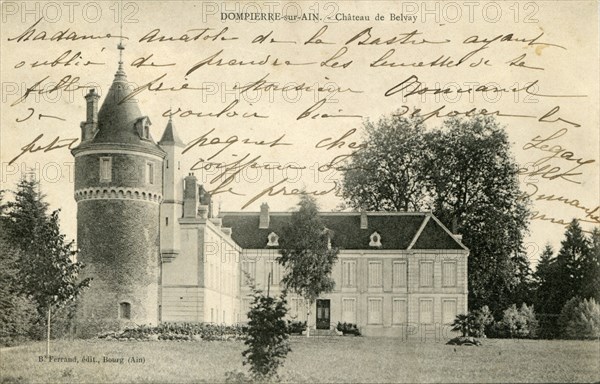 DOMPIERRE-sur-AIN. - Château de Belvay
Madame Anatole de la Bastie ayant
oublié de prendre les lunettes de sa
fille prie monsieur Bonnand
de vouloir bien déposer le
petit paquet chez
Legay
coiffeur
demain
je prendre
B. Ferrand, édit., Bourg (Ain)